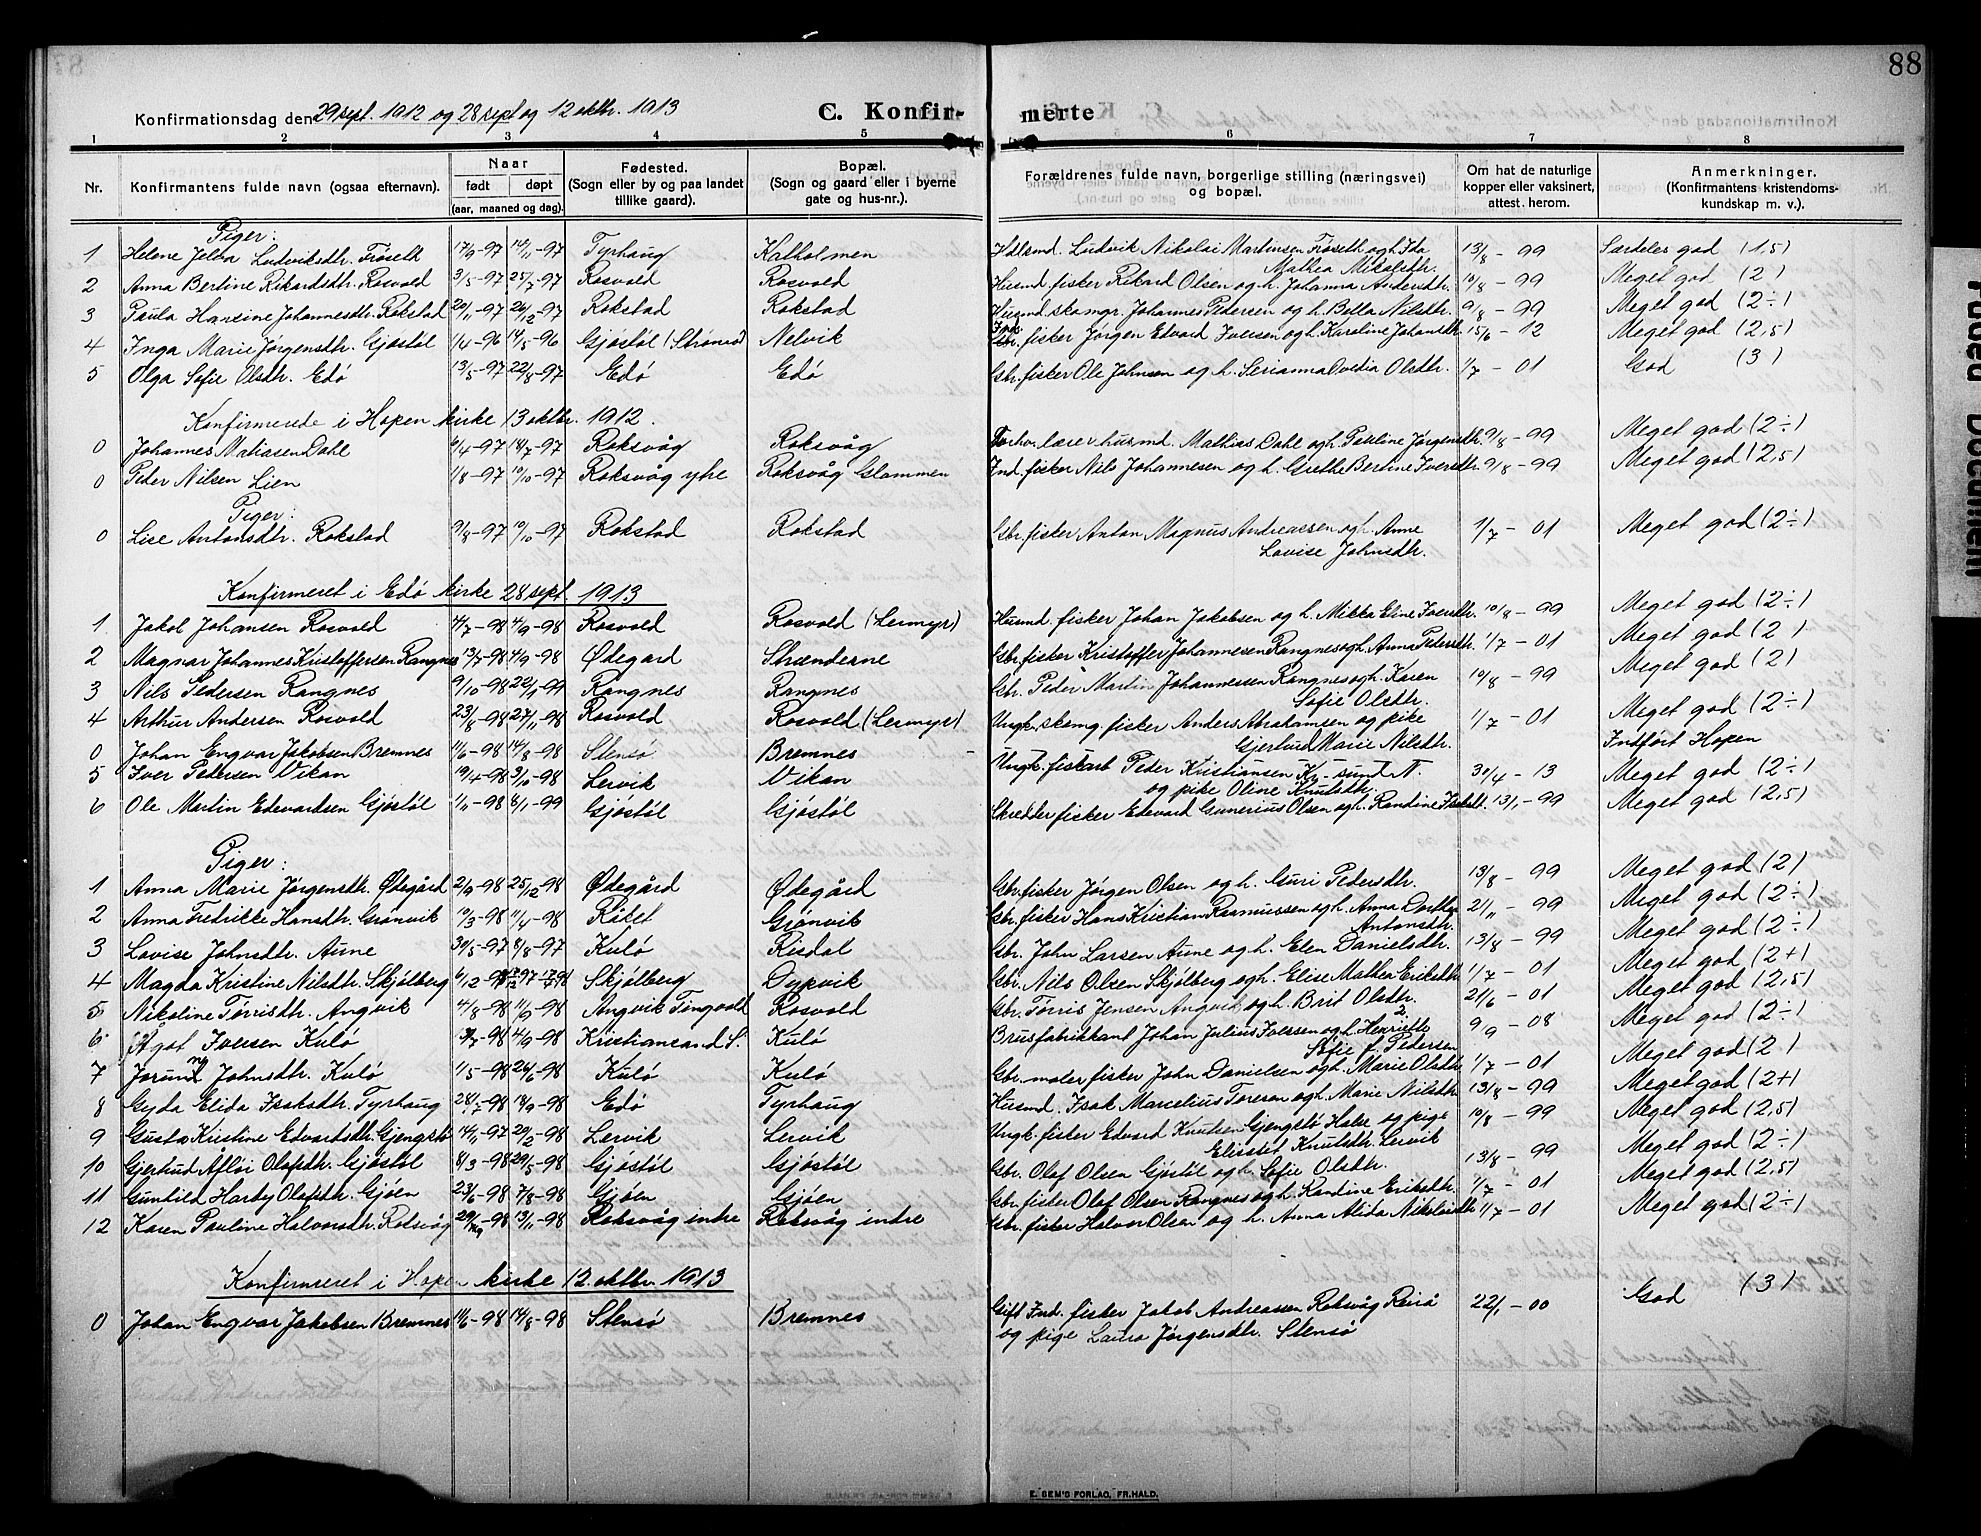 88
Konfirmationsdag den 29 sept. 1912 og 28 sept og 12 oktbr. 1913
C. Konfirmerte
1 2 3 4 5 6 7 8
Nr. Konfirmantens fulde navn (ogsaa efternavn). Naar født døpt (aar, maaned og dag). Fødested. (Sogn eller by og paa landet tillike gaard). Bopæl. (Sogn og gaard eller i byerne gate og hus-nr.). Forældrenes fulde navn, borgerlige stilling (næringsvei) og bopæl. Om hat de naturlige kopper eller vaksinert, attest. herom. Anmerkninger. (Konfirmantens kristendoms-kundskap m. v.).
Piger:
1 Helene Ludviksdtr. Frøseth 17/9-97 14/11-97 Tyrhaug Kalholmen Ludvik Nikolai Martinsen Frøseth og h. Ida Mathea Mikalsdtr. 13/8-99 Særdeles god (1,5)
2 Anna Bertine Rikardsdtr. Rosvold 3/5-97 25/7-97 Rosvold Rosvold Husmd. fisker Rikard Olsen og h. Johanna Andersdtr. 10/8-99 Meget god (2)
3 Paula Hansine Johannesdtr. Rokstad 20/11-97 26/12-97 Rokstad Rokstad Husmd. skomgr. Johannes Pedersen og h. Bella Nilsdtr. 9/8-99 Meget god (2÷)
4 Inga Marie Jørgensdtr. Gjøstøl 1/4-96 14/5-96 Gjøstøl Nelvik fisker Jørgen Edvard Iversen og h. Karoline Johansdtr. 15/6-12 Meget god (2,5)
5 Olga Sofie Olsdtr. Edø 13/5-97 22/8-97 Edø Edø Gbr. fisker Ole Johnsen og h. Serianna Ovedia Olsdtr. 1/7-01 God (3)
Konfirmerede i Hopen kirke 13 oktbr. 1912.
0 Johannes Matiasen Dahl 6/4-97 18/7-97 Roksvåg Roksvåg husmd. Mathias Dahl og h. Pauline Jørgensdtr. 9/8-99 Meget god (2÷)
0 Peder Nilsen Lien 1/8-97 10/10-97 Roksvåg ytre Roksvåg Glammen Ind. fisker Nils Johannesen og h. Grethe Bertine Iversdtr. 9/8-99 Meget god (2,5)
Piger:
0 Lise Antonsdtr. Rokstad 9/8-97 10/10-97 Rokstad Rokstad Gbr. fisker Anton Magnus Andreassen og h. Anne Lovise Johnsdtr. 1/7-01 Meget god (2÷)
Konfirmeret i Edø kirke 28 sept. 1913
1 Jakob Johansen Rosvold 4/7-98 4/9-98 Rosvold Rosvold (Lermyr) Husmd. fisker Johan Jakobsen og h. Mikka Eline Iversdtr. 10/8-99 Meget god (2÷)
2 Magnar Johannes Kristoffersen Rangnes 13/7-98 4/9-98 Ødegård Strænderne Gbr. fisker Kristoffer Johannesen Rangnes og h. Anna Pedersdtr. 1/7-01 Meget god (2)
3 Nils Pedersen Rangnes 9/10-98 22/1-99 Rangnes Rangnes Gbr. Peder Martin Johannessen Rangnes og h. Karen Sofie Olsdtr. 10/8-99 Meget god (2)
4 Arthur Andersen Rosvold 23/8-98 27/11-98 Rosvold Rosvold (Lermyr) Ungk. skomg. fisker Anders Abrahamsen og pike Gjertrud Marie Nilsdtr. 1/7-01 Meget god (2÷)
0 Johan Engvar Jakobsen Bremnes 11/6-98 14/8-98 Stensø Bremnes Indført Hopen
5 Iver Pedersen Vikan 19/4-98 3/10-98 Lervik Vikan Ungk. Peder Kristiansen Kr.sund N. og pike Oline Knutsdtr. 30/4-13 Meget god (2÷)
6 Ole Martin Edevardsen Gjøstøl 1/11-98 8/1-99 Gjøstøl Gjøstøl Skredder fisker Edevard Gunerius Olsen og h. Randine 13/1-99 Meget god (2,5)
Piger:
1 Anna Marie Jørgensdtr. Ødegård 2/9-98 25/12-98 Ødegård Ødegård Gbr. fisker Jørgen Olsen og h. Guri Pedersdtr. 13/8-99 Meget god (2)
2 Anna Fredrikke Hansdtr. Grønvik 10/3-98 11/4-98 Riket Grønvik Gbr. fisker Hans Kristian Rasmussen og h. Anna Dorthea Antonsdtr. 21/11-99 Meget god (2÷)
3 Lovise Johnsdtr. Aune 30/5-97 8/8-97 Kulø Risdal Gbr. John Larsen Aune og h. Elen Danielsdtr. 13/8-99 Meget god (2÷)
4 Magda Kristine Nilsdtr. Skjølberg 6/12-97 Skjølberg Dypvik Gbr. Nils Olsen Skjølberg og h. Elise Mathea Eriksdtr. 1/7-01 Meget god (2+)
5 Nikoline Tørrisdtr. Angvik 4/8-98 11/9-98 Angvik Tingvold Rosvold Gbr. Tørris Jensen Angvik og h. Brit Olsdtr. 21/6-01 Meget god (2,5)
6 Ågot Iversen Kulø 4/9-98 Kristiansand S. Kulø Brusfabrikkant Johan Julius Iversen og h. Henriette Sofie f. Pedersen 9/9-08 Meget god (2÷)
7 Jorunn Johnsdtr. Kulø 1/5-98 26/6-98 Kulø Kulø Gbr. maler fisker John Danielsen og h. Marie Olsdtr. 1/7-01 Meget god (2)
8 Gyda Elida Isaksdtr. Tyrhaug 24/7-98 18/9-98 Edø Tyrhaug Husmd. Isak Marcelius Toresen og h. Marie Nilsdtr. 13/8-99 Meget god (2+)
9 Gusta Kristine Edvardsdtr. Gjengstø 14/11-97 20/2-98 Lervik Lervik Ungk. fisker Edvard Knutsen Gjengstø Halse og pige Elisabet Knutsdtr. Lervik 10/8-99 Meget god (2,5)
10 Gjertrud Afløi Olafsdtr. Gjøstøl 8/3-98 29/5-98 Gjøstøl Gjøstøl Gbr. Olaf Olsen Gjøstøl og h. Sofie Olsdtr. 13/8-99 Meget god (2÷)
11 Gunhild Hardy Olafsdtr. Gjøen 23/6-98 7/8-98 Gjøen Gjøen Gbr. fisker Olaf Olsen Rangnes og h. Randine Eriksdtr. 1/7-01 Meget god (2,5)
12 Karen Pauline Halvorsdtr. Roksvåg 13/11-98 Roksvåg indre Roksvåg indre Gbr. fisker Halvor Olsen og h. Anna Alida Nikolaisdtr. 1/7-01 Meget god (2÷)
Konfirmeret i Hopen kirke 12. oktbr. 1913
0 Johan Engvar Jakobsen Bremnes 11/6-98 14/8-98 Stensø Bremnes Gift Ind. fisker Jakob Andreassen Roksvåg og pige Laura Jørgensdtr. Stensø 22/1-00 God (3)
E. SEM'S FORLAG, FR.HALD.